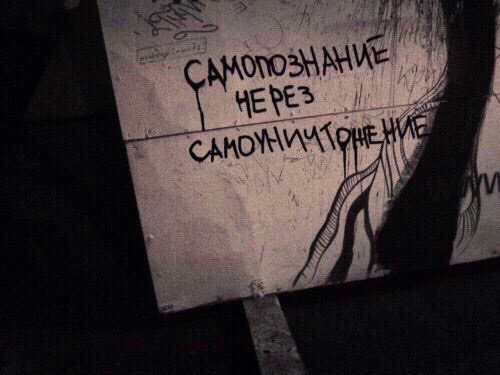 САМОПОЗНАНИЕ
ЧЕРЕЗ
САМОУНИЧТОЖЕНИЕ